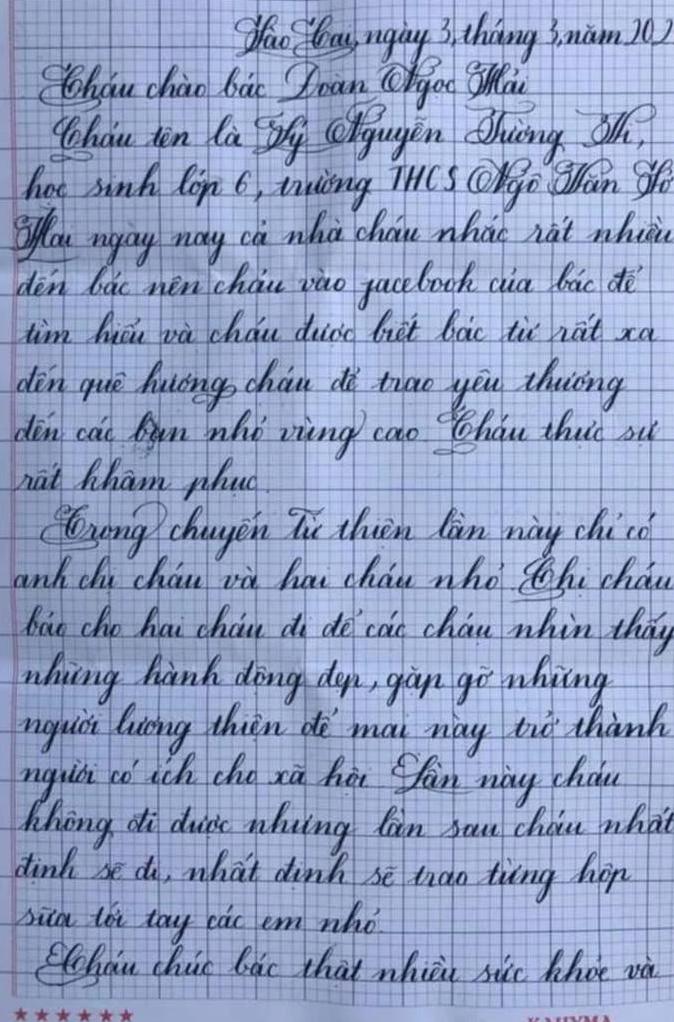 Lào Cai, ngày 3, tháng 3, năm 202
Cháu chào bác Đoàn Ngọc Hải
Cháu tên là Lý Nguyễn Tường Vi,
học sinh lớp 6, trường THCS Ngô Văn Sở
Hai ngày nay cả nhà cháu nhắc rất nhiều
đến bác nên cháu vào facebook của bác để
tìm hiểu và cháu được biết bác từ rất xa
đến quê hương cháu để trao yêu thương
đến các bạn nhỏ vùng cao Cháu thực sự
rất khâm phục.
Trong chuyến Từ thiện lần này chỉ có
anh chị cháu và hai cháu nhỏ Chị cháu
bảo cho hai cháu đi để các cháu nhìn thấy
những hành động đẹp, gặp gỡ những
người lương thiện để mai này trở thành
người có ích cho xã hội Lần này cháu
không đi được nhưng lần sau cháu nhất
định sẽ đi, nhất định sẽ trao từng hộp
sữa tới tay các em nhỏ.
Cháu chúc bác thật nhiều sức khỏe và